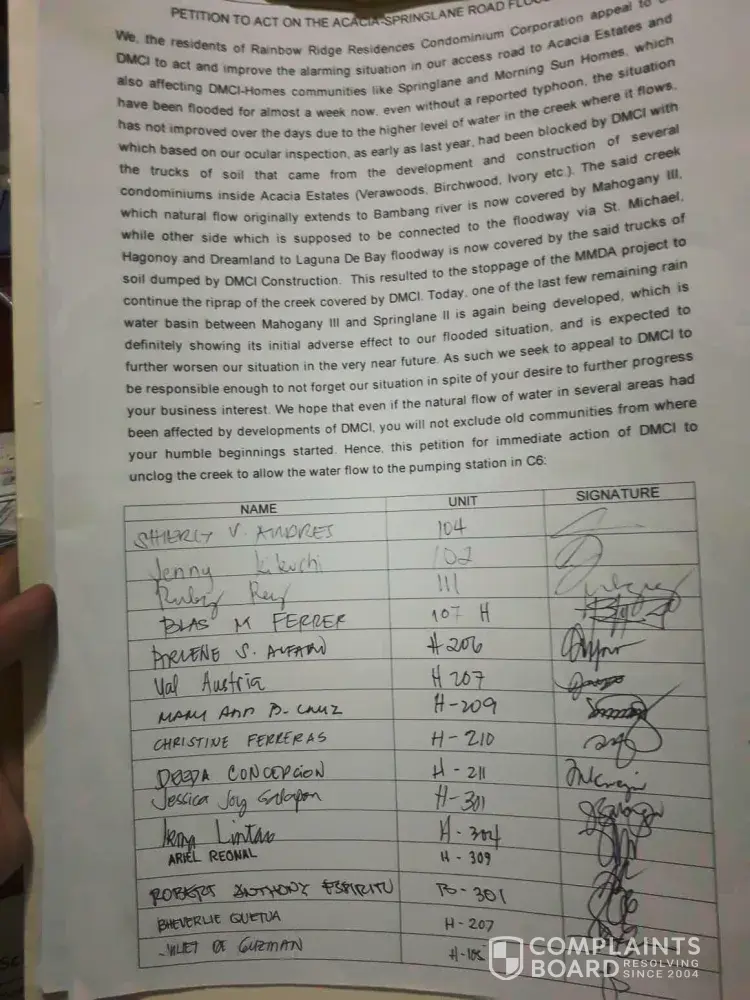 PETITION TO ACT ON THE ACACIA-SPRINGLANE ROAD
We, the residents of Rainbow Ridge Residences Condominium Corporation appeal to
DMCI to act and improve the alarming situation in our access road to Acacia Estates and
also affecting DMCI-Homes communities like Springlane and Morning Sun Homes, which
have been flooded for almost a week now, even without a reported typhoon, the situation
has not improved over the days due to the higher level of water in the creek where it flows,
which based on our ocular inspection, as early as last year, had been blocked by DMCI with
the trucks of soil that came from the development and construction of several
condominiums inside Acacia Estates (Verawoods, Birchwood, Ivory etc.). The said creek
which natural flow originally extends to Bambang river is now covered by Mahogany III,
while other side which is supposed to be connected to the floodway via St. Michael,
Hagonoy and Dreamland to Laguna De Bay floodway is now covered by the said trucks of
soil dumped by DMCI Construction. This resulted to the stoppage of the MMDA project to
continue the riprap of the creek covered by DMCI. Today, one of the last few remaining rain
water basin between Mahogany III and Springlane II is again being developed, which is
definitely showing its initial adverse effect to our flooded situation, and is expected to
further worsen our situation in the very near future. As such we seek to appeal to DMCI to
be responsible enough to not forget our situation in spite of your desire to further progress
your business interest. We hope that even if the natural flow of water in several areas had
been affected by developments of DMCI, you will not exclude old communities from where
your humble beginnings started. Hence, this petition for immediate action of DMCI to
unclog the creek to allow the water flow to the pumping station in C6:
NAME UNIT SIGNATURE
SHIERLY V. ANDRES 104
Jenny Kikuchi 102
Ruby Rey 111
BLAS M FERRER 107 H
ARLENE S. ALFARO H 206
Val Austria H 207
MARY ANN B. CRUZ H-209
CHRISTINE FERRERAS H-210
CONCEPCION H-211
Jessica Joy H-301
Lintao H-304
ARIEL REONAL H-309
ROBERT ANTHONY ESPIRITU B-301
BHEVERLIE GUETUA H-207
JULIET DE GUZMAN H-105
COMPLAINTS
BOARD RESOLVING
SINCE 2004